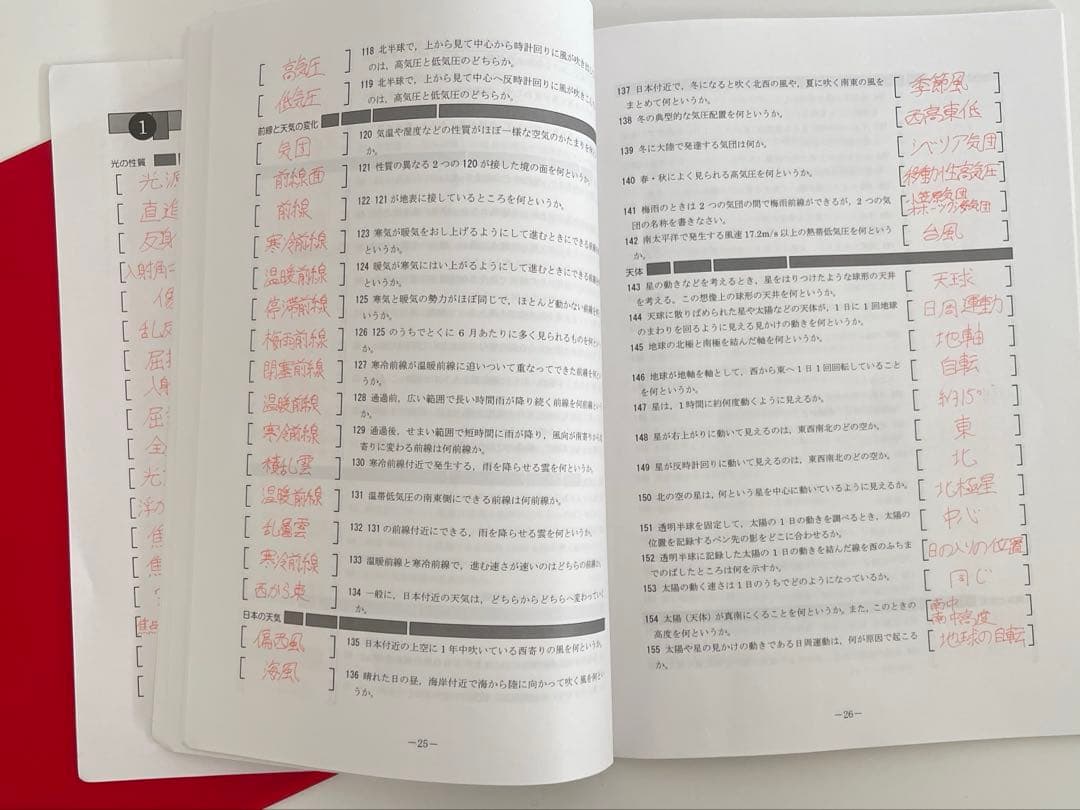 1
光の性質
光
直進
反射
入射角
乱反
屈
入射
屈
全
光
浮の
焦
焦
焦点
高気圧
118 北半球で，上から見て中心から時計回りに風が吹き
のは，高気圧と低気圧のどちらか。
低気圧
119 北半球で，上から見て中心へ反時計回りに風が吹きこ
のは，高気圧と低気圧のどちらか。
前線と天気の変化
気団
120 気温や湿度などの性質がほぼ一様な空気のかたまりを
か。
前線面
121 性質の異なる2つの120が接した境の面を何というか。
前線
122 121が地表に接しているところを何というか。
寒冷前線
123 寒気が暖気をおし上げるようにして進むときにできる前線
というか。
温暖前線
124 暖気が寒気にはい上がるようにして進むときにできる前線
というか。
停滞前線
125 寒気と暖気の勢力がほぼ同じで，ほとんど動かない前線を
梅雨前線
126 125のうちでとくに6月あたりに多く見られるものを何とい
閉塞前線
127 寒冷前線が温暖前線に追いついて重なってできた前線を何と
うか。
温暖前線
128 通過前，広い範囲で長い時間雨が降り続く前線を何前線とい
か。
寒冷前線
129 通過後，せまい範囲で短時間に雨が降り，風向が南寄りから
寄りに変わる前線は何前線か。
積乱雲
130 寒冷前線付近で発生する，雨を降らせる雲を何というか。
温暖前線
131 温帯低気圧の南東側にできる前線は何前線か。
乱層雲
132 131の前線付近にできる，雨を降らせる雲を何というか。
寒冷前線
133 温暖前線と寒冷前線で，進む速さが速いのはどちらの前線か。
西から東
134 一般に，日本付近の天気は，どちらからどちらへ変わってい
か。
日本の天気
偏西風
135 日本付近の上空に1年中吹いている西寄りの風を何というか。
海風
136 晴れた日の昼，海岸付近で海から陸に向かって吹く風を何とい
うか。
－25－
137 日本付近で，冬になると吹く北西の風や，夏に吹く南東の風を
まとめて何というか。
季節風
138 冬の典型的な気圧配置を何というか。
西高東低
139 冬に大陸で発達する気団は何か。
シベリア気団
140 春・秋によく見られる高気圧を何というか。
移動性高気圧
141 梅雨のときは2つの気団の間で梅雨前線ができるが，2つの気
団の名称を書きなさい。
小笠原気団
オホーツク海気団
142 南太平洋で発生する風速17.2m/s以上の熱帯低気圧を何という
か。
台風
天体
143 星の動きなどを考えるとき，星をはりつけたような球形の天井
を考える。この想像上の球形の天井を何というか。
天球
144 天球に散りばめられた星や太陽などの天体が，1日に1回地球
のまわりを回るように見える見かけの動きを何というか。
日周運動
145 地球の北極と南極を結んだ軸を何というか。
地軸
146 地球が地軸を軸として，西から東へ1日1回回転していること
を何というか。
自転
147 星は，1時間に約何度動くように見えるか。
約15°
148 星が右上がりに動いて見えるのは，東西南北のどの空か。
東
149 星が反時計回りに動いて見えるのは，東西南北のどの空か。
北
150 北の空の星は，何という星を中心に動いているように見えるか。
北極星
151 透明半球を固定して，太陽の1日の動きを調べるとき，太陽の
位置を記録するペン先の影をどこに合わせるか。
中心
152 透明半球に記録した太陽の1日の動きを結んだ線を西のふちま
でのばしたところは何を示すか。
日の入りの位置
153 太陽の動く速さは1日のうちでどのようになっているか。
同じ
154 太陽（天体）が真南にくることを何というか。また，このときの
高度を何というか。
南中
南中高度
155 太陽や星の見かけの動きである日周運動は，何が原因で起こる
か。
地球の自転
－26－